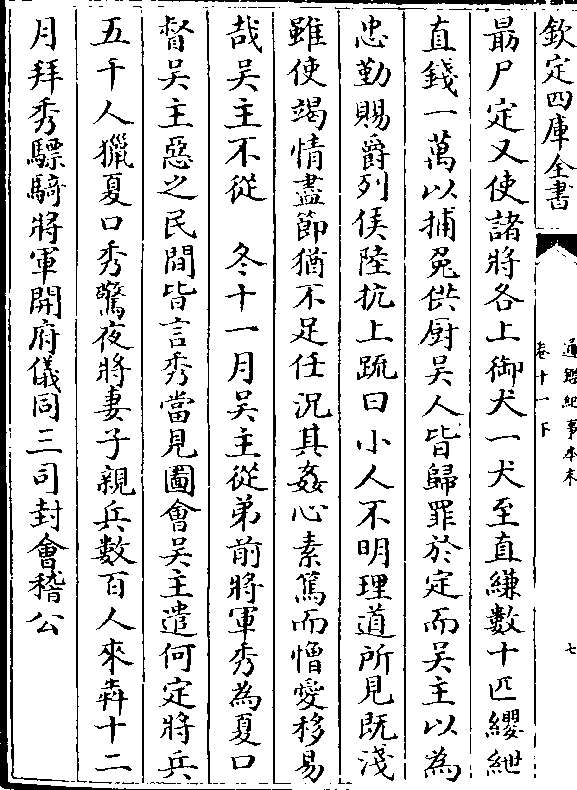 欽定四庫全書
通鑑紀事本末
卷十一下
七
朂尸定又使諸將各上御犬一犬至直縑數十匹纓紲
直錢一萬以捕兔供厨吳人皆歸罪於定而吳主以為
忠勤賜爵列侯陸抗上疏曰小人不明理道所見既淺
雖使竭情盡節猶不足任況其姦心素篤而憎愛移易
哉吳主不從　冬十一月吳主從弟前將軍秀為夏口
督吳主惡之民間皆言秀當見圖會吳主遣何定將兵
五千人獵夏口秀驚夜將妻子親兵數百人來犇十二
月拜秀驃騎將軍開府儀同三司封會稽公